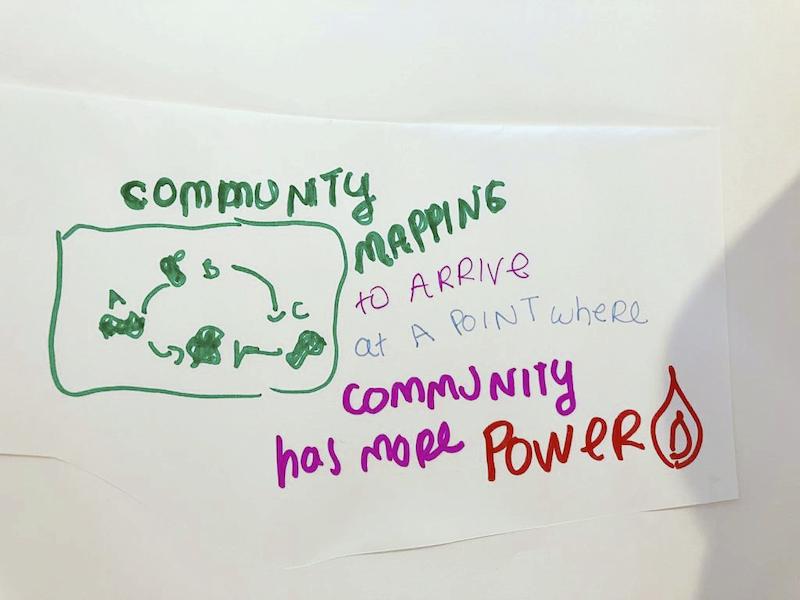 COMMUNITY
MAPPING
A
B
C
to ARRIVE
at A POINT where
COMMUNITY
has more POWER